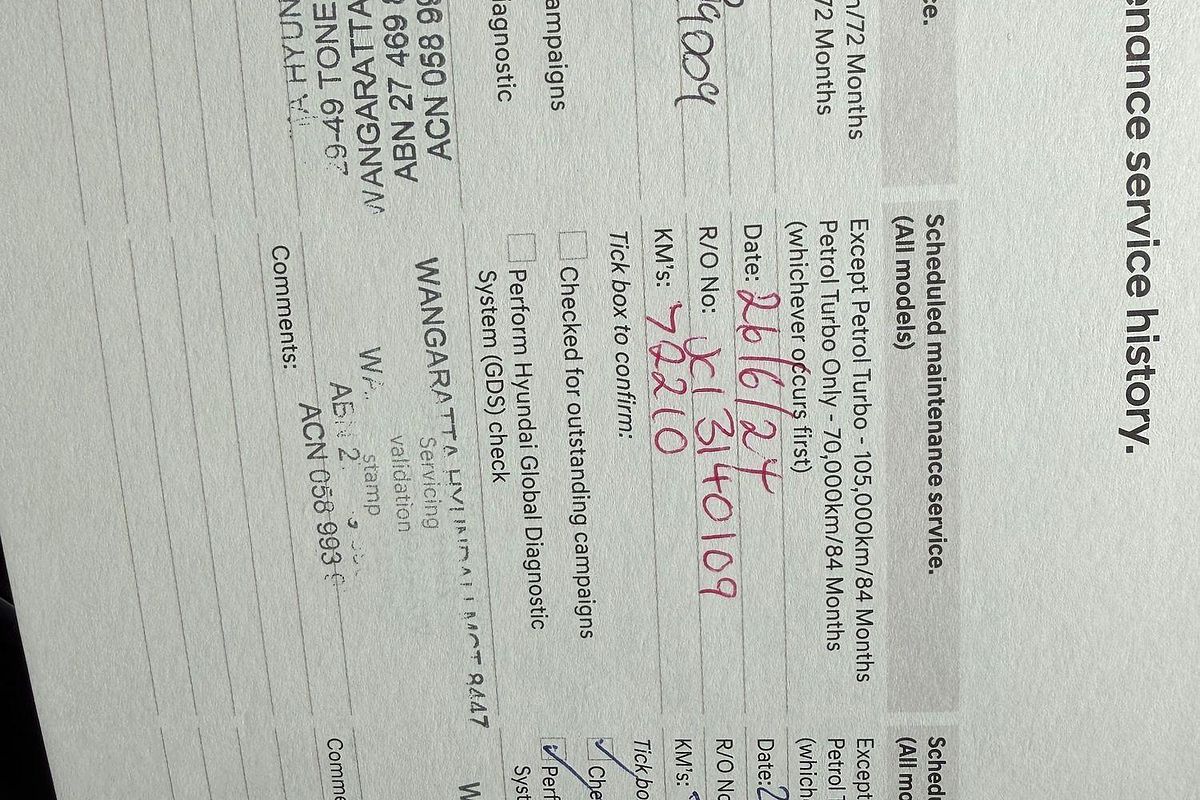 enance service history.
ce.
n/72 Months
72 Months
9009
ampaigns
iagnostic
ACN 058 99
ABN 27 469
WANGARATTA
49-67
HYUN
Scheduled maintenance service.
(All models)
Except Petrol Turbo - 105,000km/84 Months
Petrol Turbo Only - 70,000km/84 Months
(whichever occurs first)
Date: 26/6/24
R/O No: JC13140109
KM's: 72210
Tick box to confirm:
Checked for outstanding campaigns
Perform Hyundai Global Diagnostic
System (GDS) check
WANGARATTA HYUNDAI LMCT 8447
Servicing
validation
stamp
ACN 058 993
Comments:
Schedu
(All mo
Except
Petrol T
(which
Date: 2
R/O No
KM's:
Tick bo
Che
Perf
Syst
W
Comme